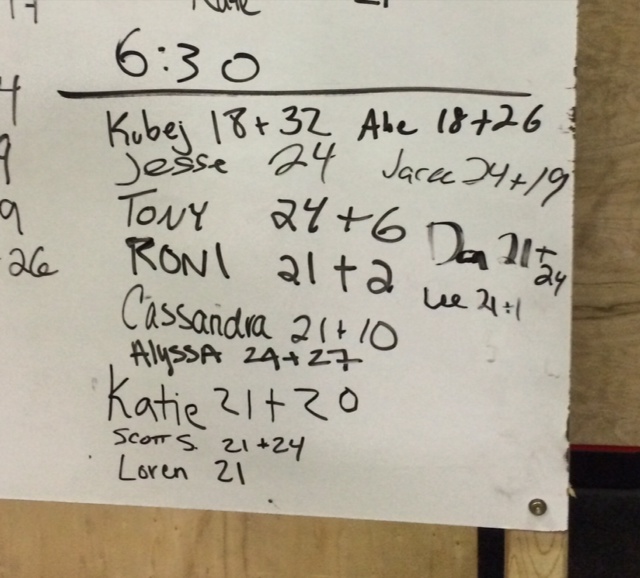 6:30
Kubej 18+32 Abe 18+26
Jesse 24
Jaree 24+19
TONY 24+6
RONI 21+2
Dan 21+24
Lee 21+1
Cassandra 21+10
Alyssa 24+27
Katie 21+20
Scott S. 21+24
Loren 21
26